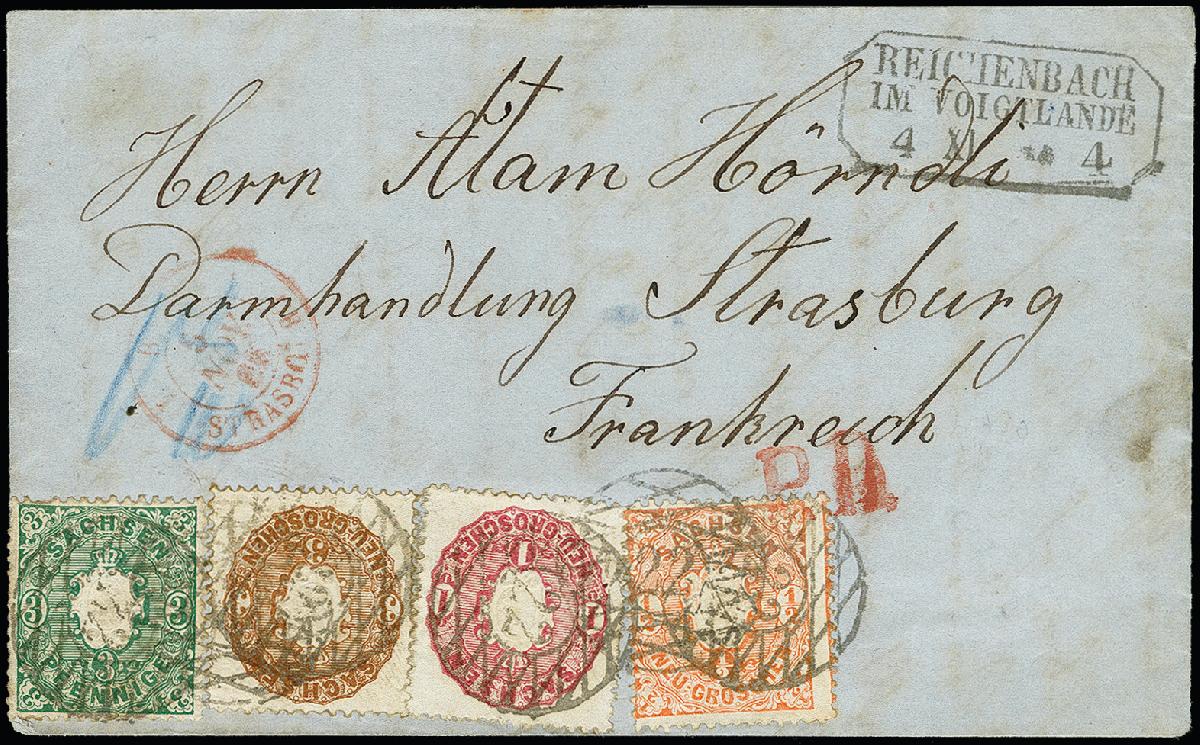 REICHENBACH
IM VOIGTLANDE
4 XI 4
Herrn Adam Hörndli
Darmhandlung Strasburg
Frankreich
STRASBG
P.D.
3 3
SACHSEN
3 3
3
PFENNIGE
3
NEU-GROSCHEN
3 3
SACHSEN
1
NEU-GROSCHEN
1 1
SACHSEN
SACHSEN
1/2
NEU-GROSCHEN